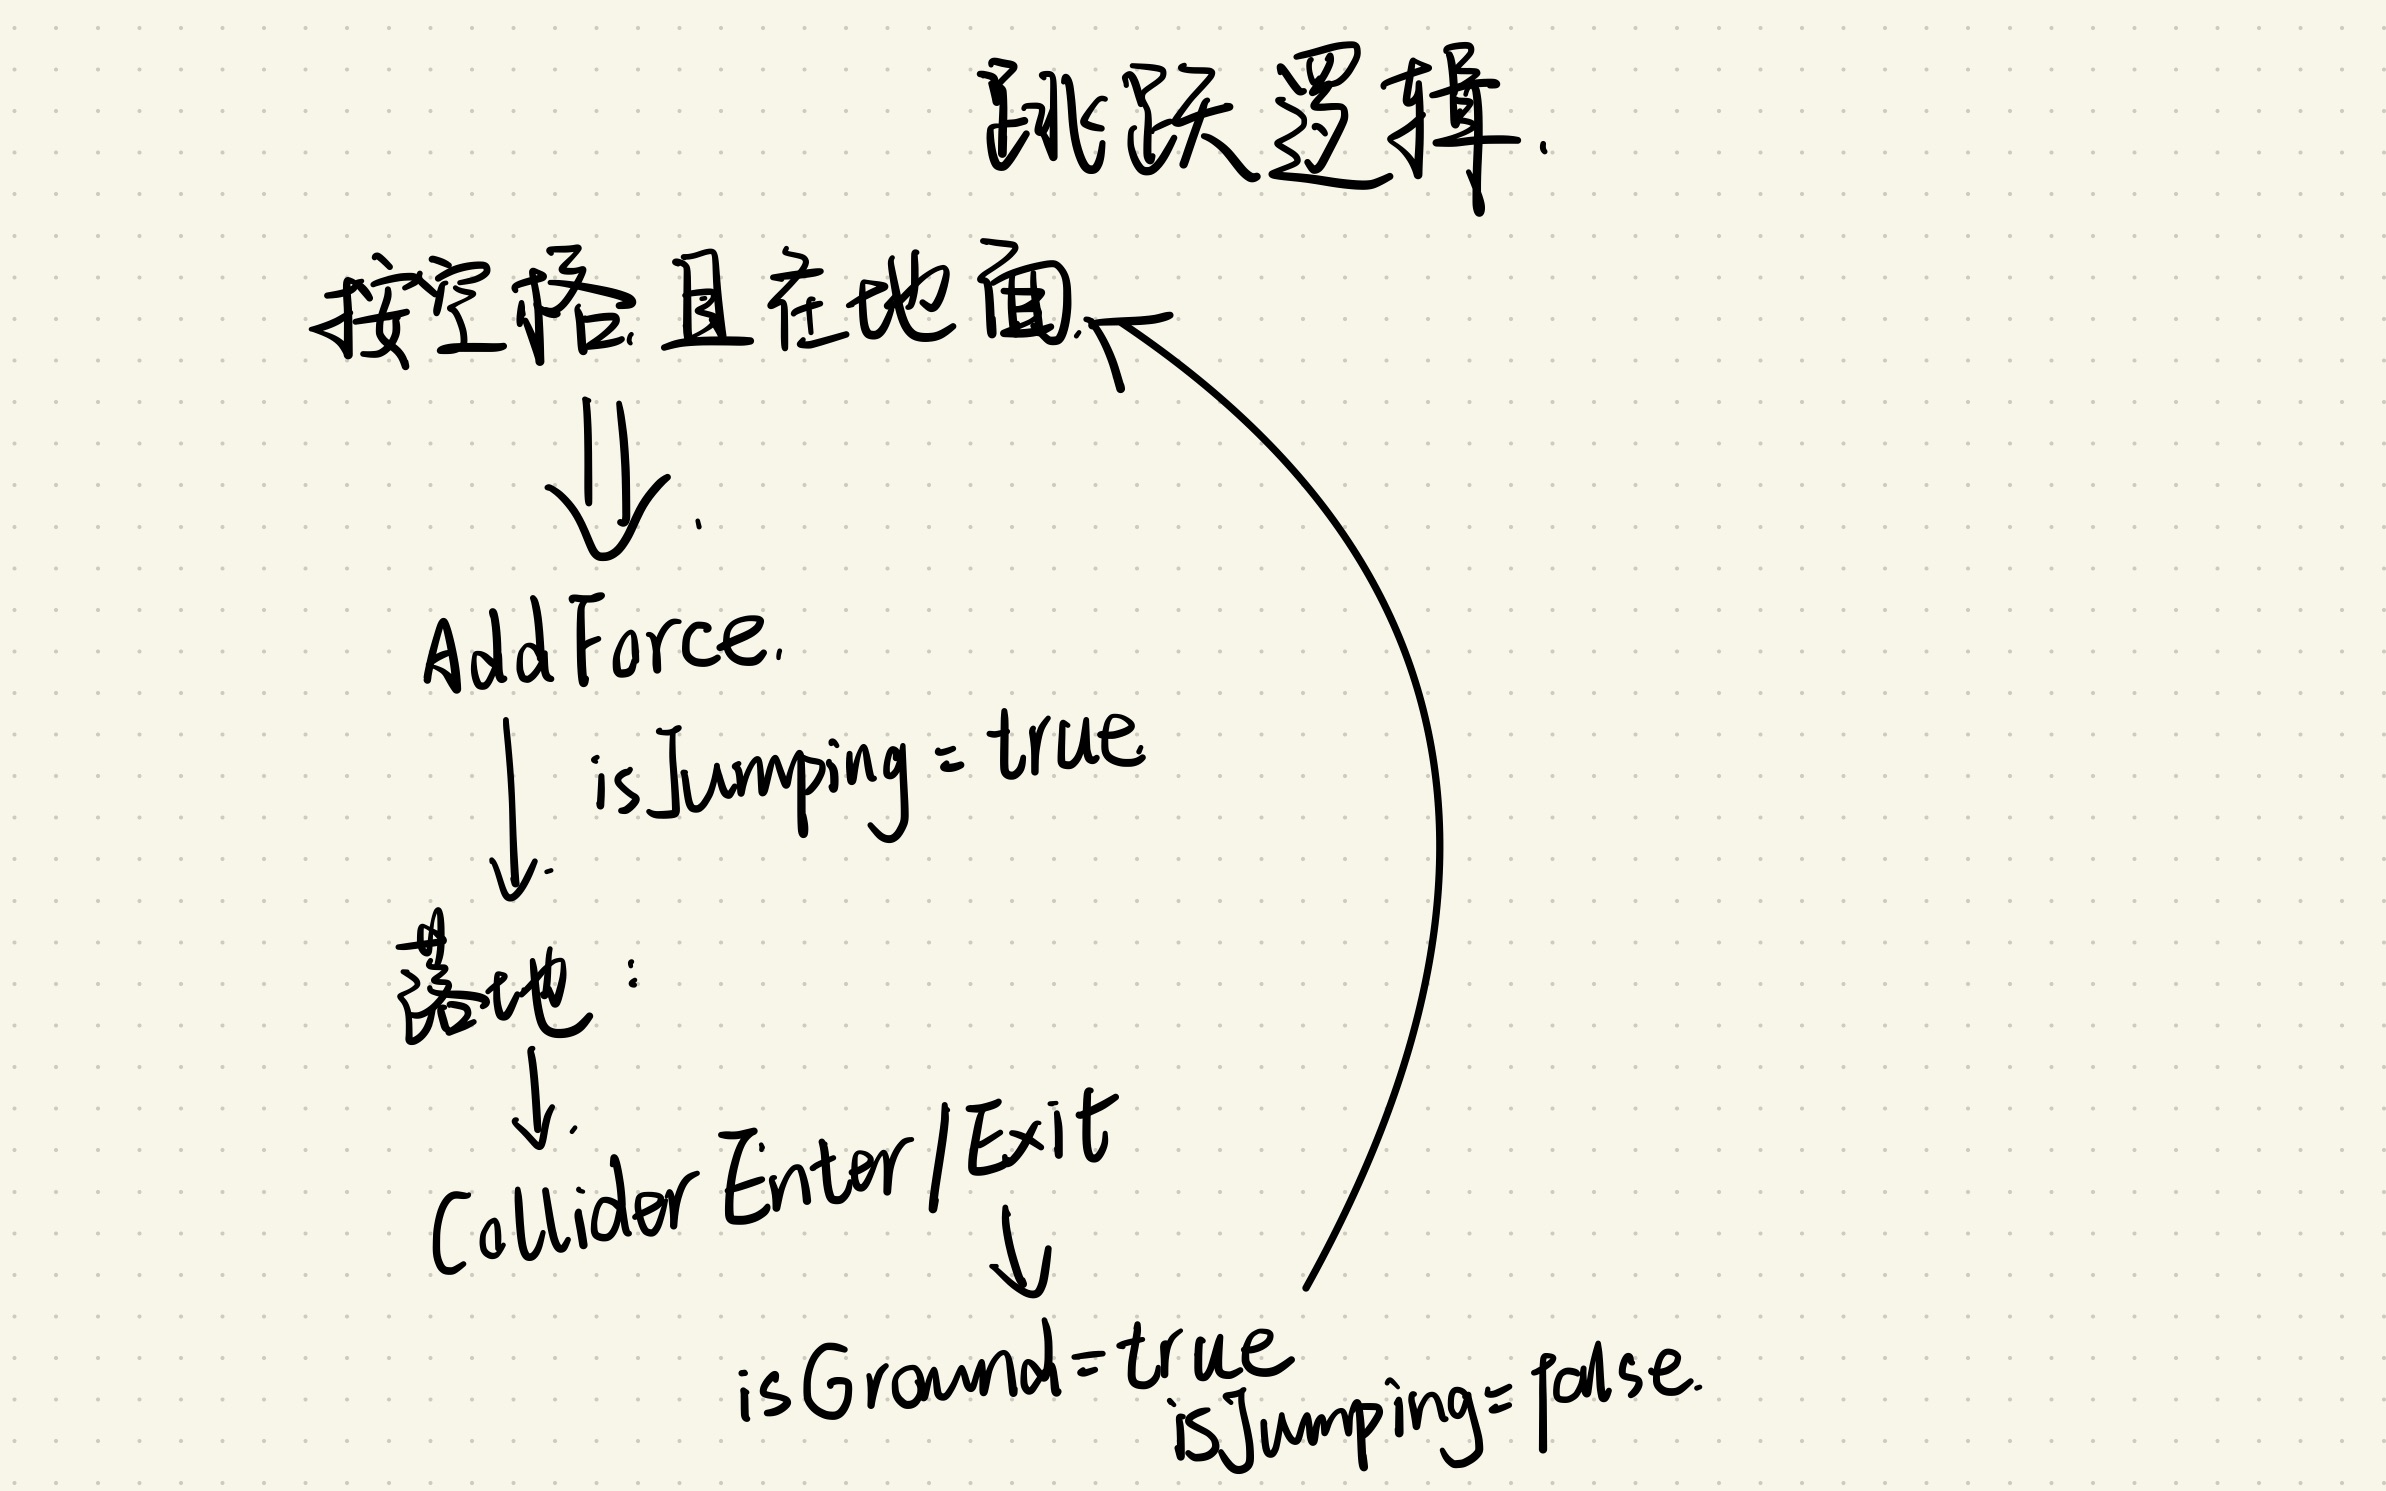 跳跃逻辑.
按空格且在地面.
AddForce.
isJumping=true.
落地:
Collider Enter/Exit
isGround=true
isJumping=false.